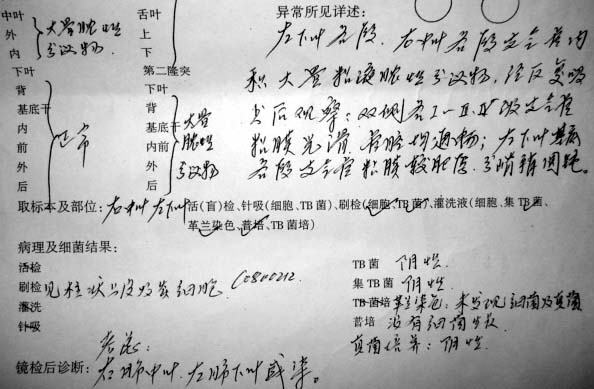 中叶 舌叶 异常所见详述:
外 大量脓性 上 左下叶各段、右中叶各段支气管内
内 分泌物 下 积大量粘液脓性分泌物,经反复吸
下叶 第二隆突
背 下叶 后观察:双侧各I-II.III级支气管
基底干 背 大量
内 正常 基底干 脓性 粘膜光滑,管腔均通畅;左下叶基底
前 内前 分泌物 各段支气管粘膜较肥厚、分嵴稍圆钝。
外 外
后 后
取标本及部位:右中叶 左下叶 活(盲)检、针吸(细胞、TB菌)、刷检(细胞、TB菌)、灌洗液(细胞、集TB菌、
革兰染色、普培、TB菌培)
病理及细菌结果:
活检 TB菌 阴性.
刷检 见柱状上皮及炎细胞. C0800212 集TB菌 阴性.
灌洗 TB菌培 革兰染色:未发现细菌及真菌
针吸 普培 没有细菌生长
真菌培养:阴性.
考虑:
镜检后诊断:右肺中叶、左肺下叶感染。